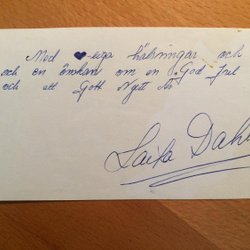 Med ♥-liga hälsningar och
och en önskan om en God Jul
och ett Gott Nytt År
Laila Dahl